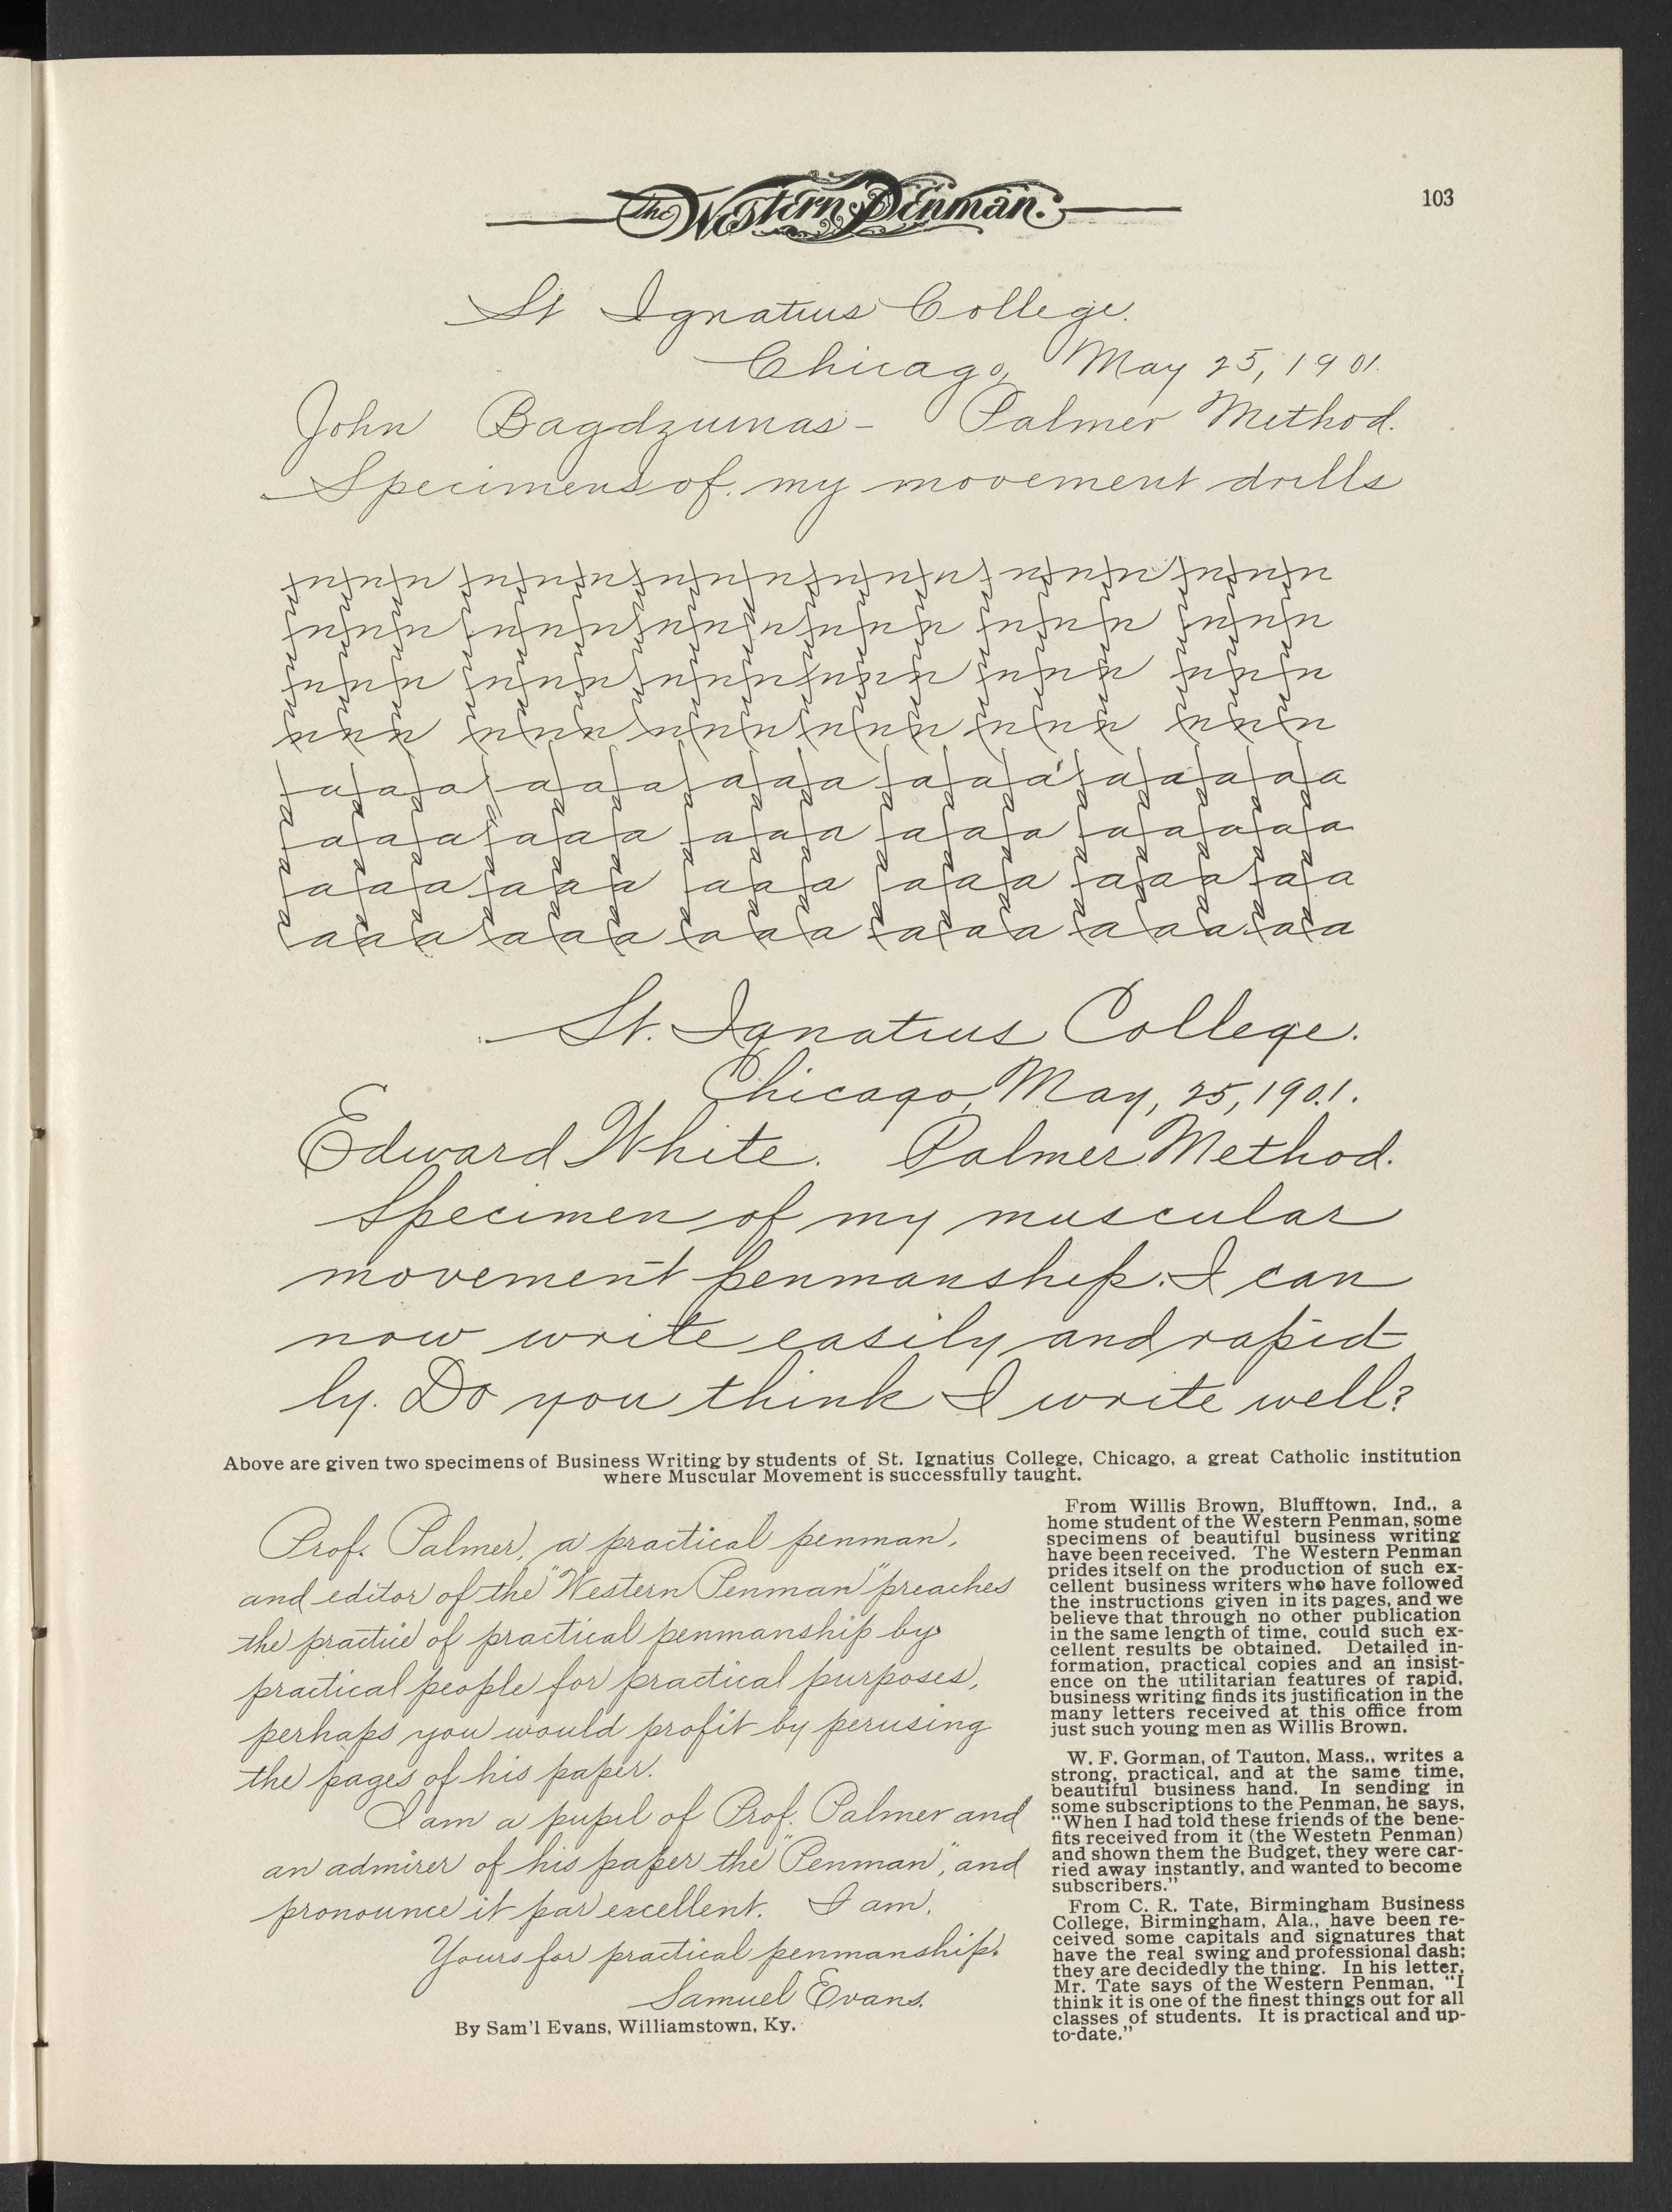 The Western Penman.
103
St Ignatius College.
Chicago, May 25, 1901.
John Bagdziunas - Palmer Method.
Specimens of my movement drills
n n n n n n n n n n n n n n n n n n
n n n n n n n n n n n n n n n n n n
n n n n n n n n n n n n n n n n n n
n n n n n n n n n n n n n n n n n n
a a a a a a a a a a a a a a a a a a
a a a a a a a a a a a a a a a a a a
a a a a a a a a a a a a a a a a a a
a a a a a a a a a a a a a a a a a a
St. Ignatius College.
Chicago, May, 25, 1901.
Edward White. Palmer Method.
Specimen of my muscular
movement penmanship. I can
now write easily and rapid-
ly. Do you think I write well?
Above are given two specimens of Business Writing by students of St. Ignatius College, Chicago, a great Catholic institution
where Muscular Movement is successfully taught.
Prof. Palmer, a practical penman,
and editor of the "Western Penman" preaches
the practice of practical penmanship by
practical people for practical purposes,
perhaps you would profit by perusing
the pages of his paper.
I am a pupil of Prof. Palmer and
an admirer of his paper the "Penman", and
pronounce it par excellent. I am,
Yours for practical penmanship.
Samuel Evans.
By Sam'l Evans, Williamstown, Ky.
From Willis Brown, Blufftown, Ind., a
home student of the Western Penman, some
specimens of beautiful business writing
have been received. The Western Penman
prides itself on the production of such ex-
cellent business writers who have followed
the instructions given in its pages, and we
believe that through no other publication
in the same length of time, could such ex-
cellent results be obtained. Detailed in-
formation, practical copies and an insist-
ence on the utilitarian features of rapid,
business writing finds its justification in the
many letters received at this office from
just such young men as Willis Brown.
W. F. Gorman, of Tauton, Mass., writes a
strong, practical, and at the same time,
beautiful business hand. In sending in
some subscriptions to the Penman, he says,
"When I had told these friends of the bene-
fits received from it (the Westetn Penman)
and shown them the Budget, they were car-
ried away instantly, and wanted to become
subscribers."
From C. R. Tate, Birmingham Business
College, Birmingham, Ala., have been re-
ceived some capitals and signatures that
have the real swing and professional dash;
they are decidedly the thing. In his letter,
Mr. Tate says of the Western Penman, "I
think it is one of the finest things out for all
classes of students. It is practical and up-
to-date."